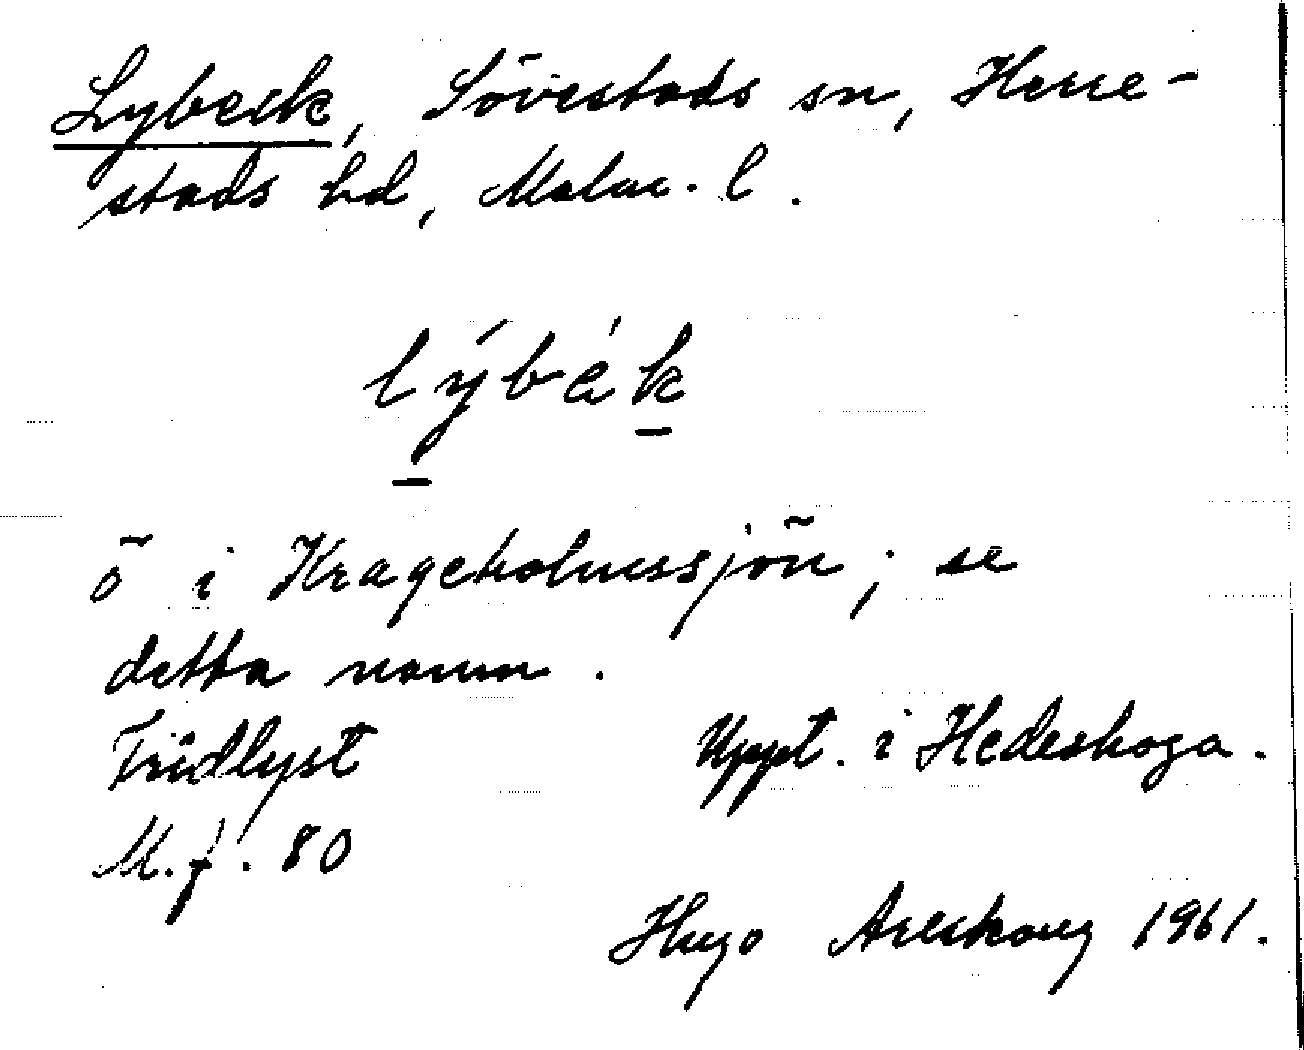 Lybeck, Sövestads sn, Herre-
stads hd, Malm. l.
lýbák
ö i Krageholmssjön; se
detta namn.
Fridlyst Uppt. i Hedeskoga.
M.f. 80
Hugo Areskoug 1961.